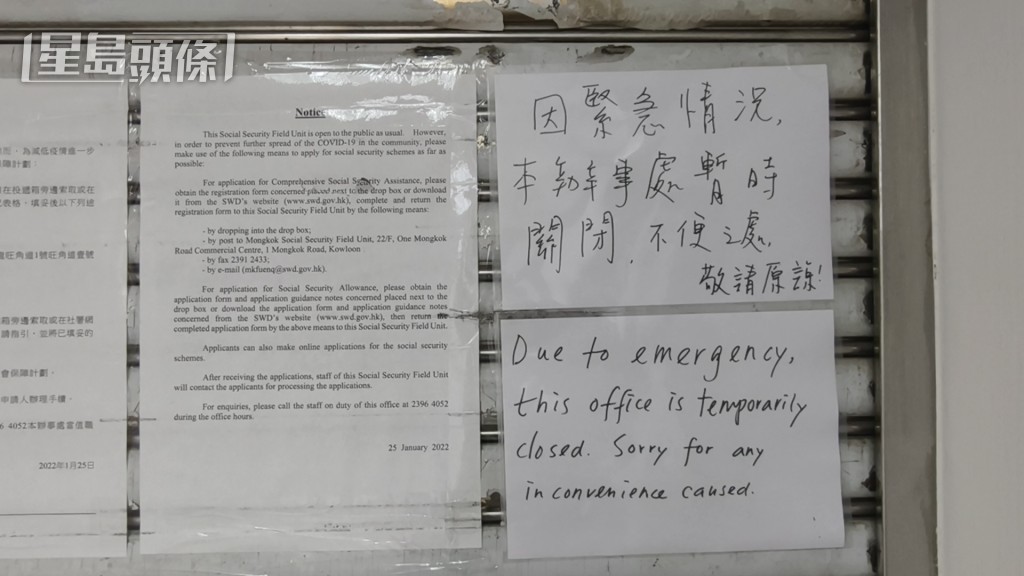 星島頭條
為減低疫情進一步
障計劃：
在投遞箱旁邊索取或在
表格，填妥後以下列途
旺角道1號旺角道壹號
箱旁邊索取或在社署網
請指引，並將已填妥的
會保障計劃。
申請人辦理手續。
96 4052本辦事處當值職
2022年1月25日
Notice
This Social Security Field Unit is open to the public as usual. However,
in order to prevent further spread of the COVID-19 in the community, please
make use of the following means to apply for social security schemes as far as
possible:
For application for Comprehensive Social Security Assistance, please
obtain the registration form concerned placed next to the drop box or download
it from the SWD's website (www.swd.gov.hk), complete and return the
registration form to this Social Security Field Unit by the following means:
- by dropping into the drop box;
- by post to Mongkok Social Security Field Unit, 22/F, One Mongkok
Road Commercial Centre, 1 Mongkok Road, Kowloon
- by fax 2391 2433;
- by e-mail (mkfuenq@swd.gov.hk).
For application for Social Security Allowance, please obtain the
application form and application guidance notes concerned placed next to the
drop box or download the application form and application guidance notes
concerned from the SWD's website (www.swd.gov.hk), then return the
completed application form by the above means to this Social Security Field Unit.
Applicants can also make online applications for the social security
schemes.
After receiving the applications, staff of this Social Security Field Unit
will contact the applicants for processing the applications.
For enquiries, please call the staff on duty of this office at 2396 4052
during the office hours.
25 January 2022
因緊急情況，
本辦事處暫時
關閉，不便之處，
敬請原諒！
Due to emergency,
this office is temporarily
closed. Sorry for any
inconvenience caused.